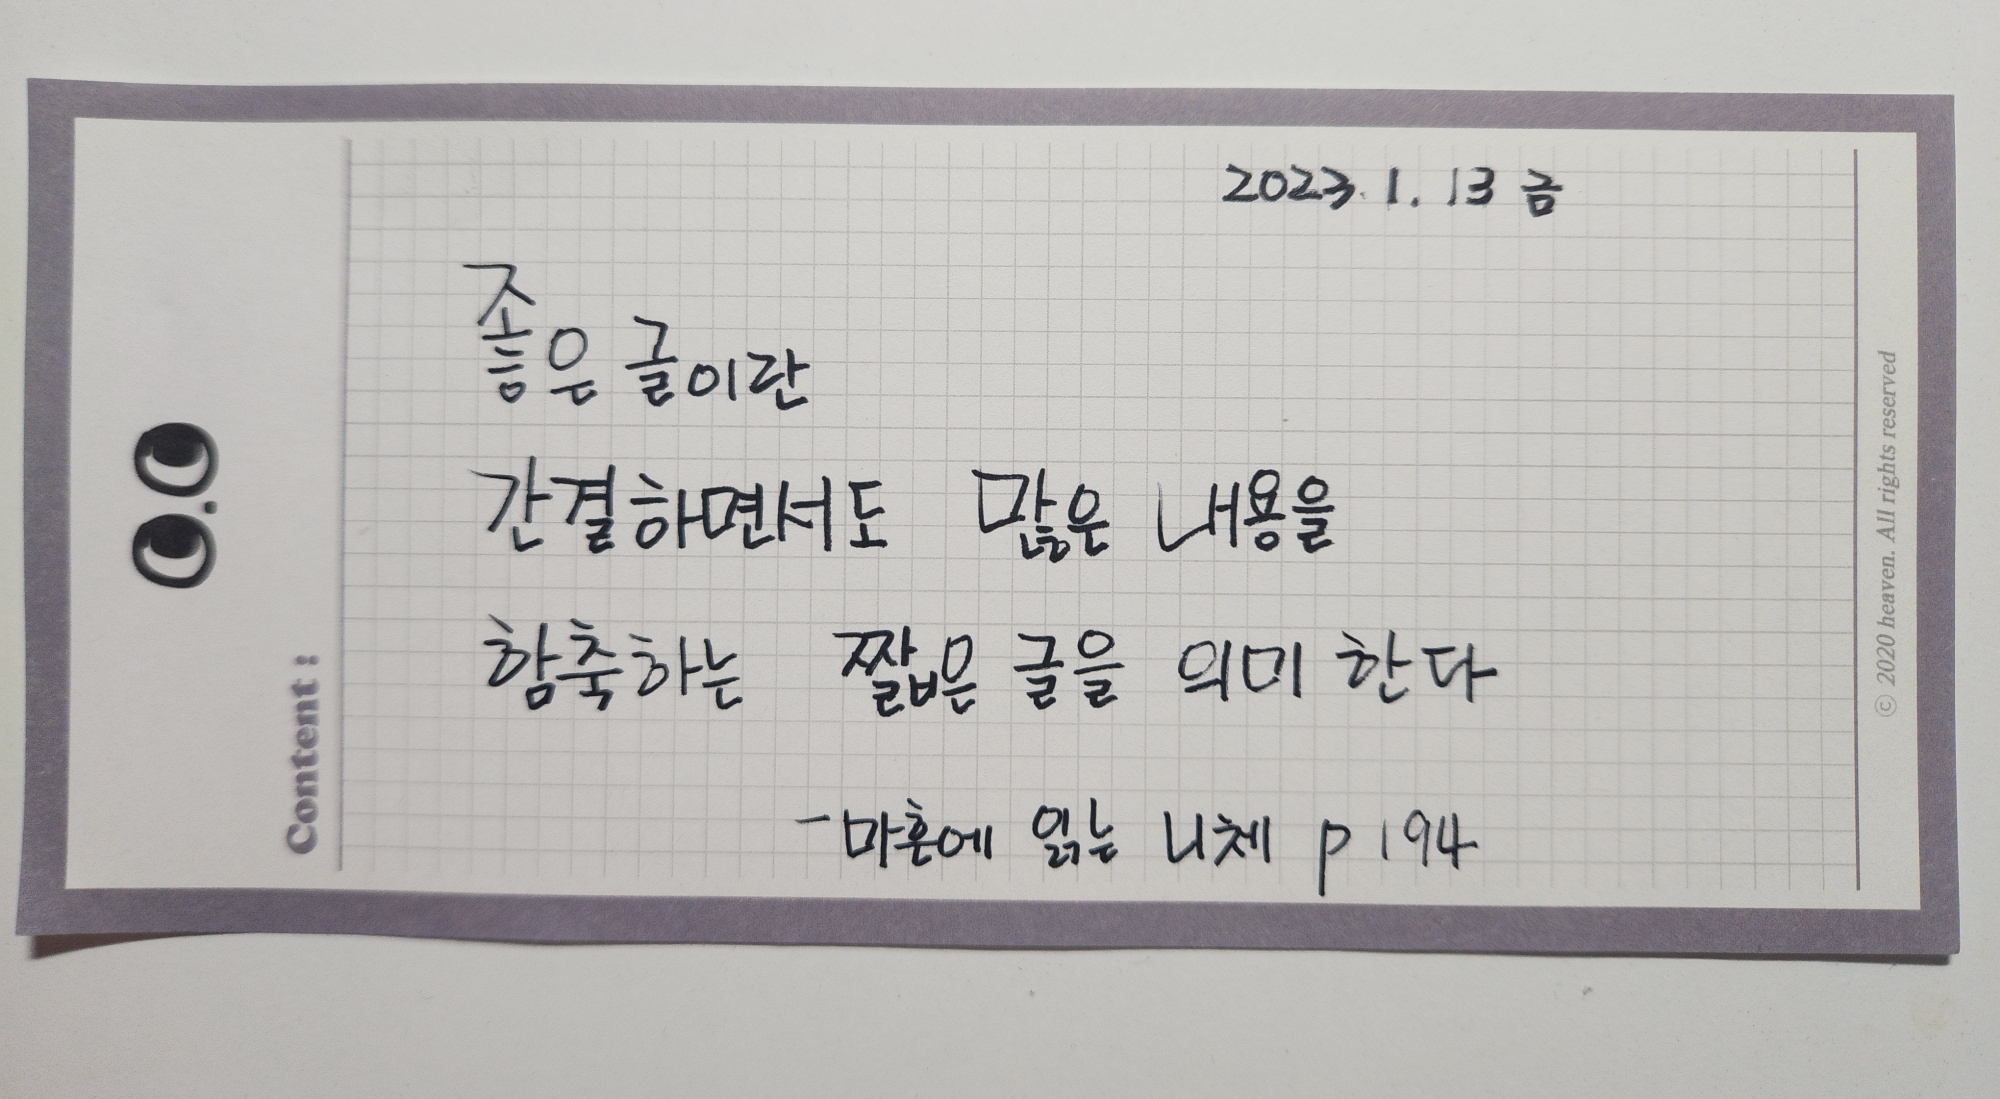 2023. 1. 13 금
좋은 글이란
간결하면서도 많은 내용을
함축하는 짧은 글을 의미 한다
- 마흔에 읽는 니체 p 194
Content :
© 2020 heaven. All rights reserved